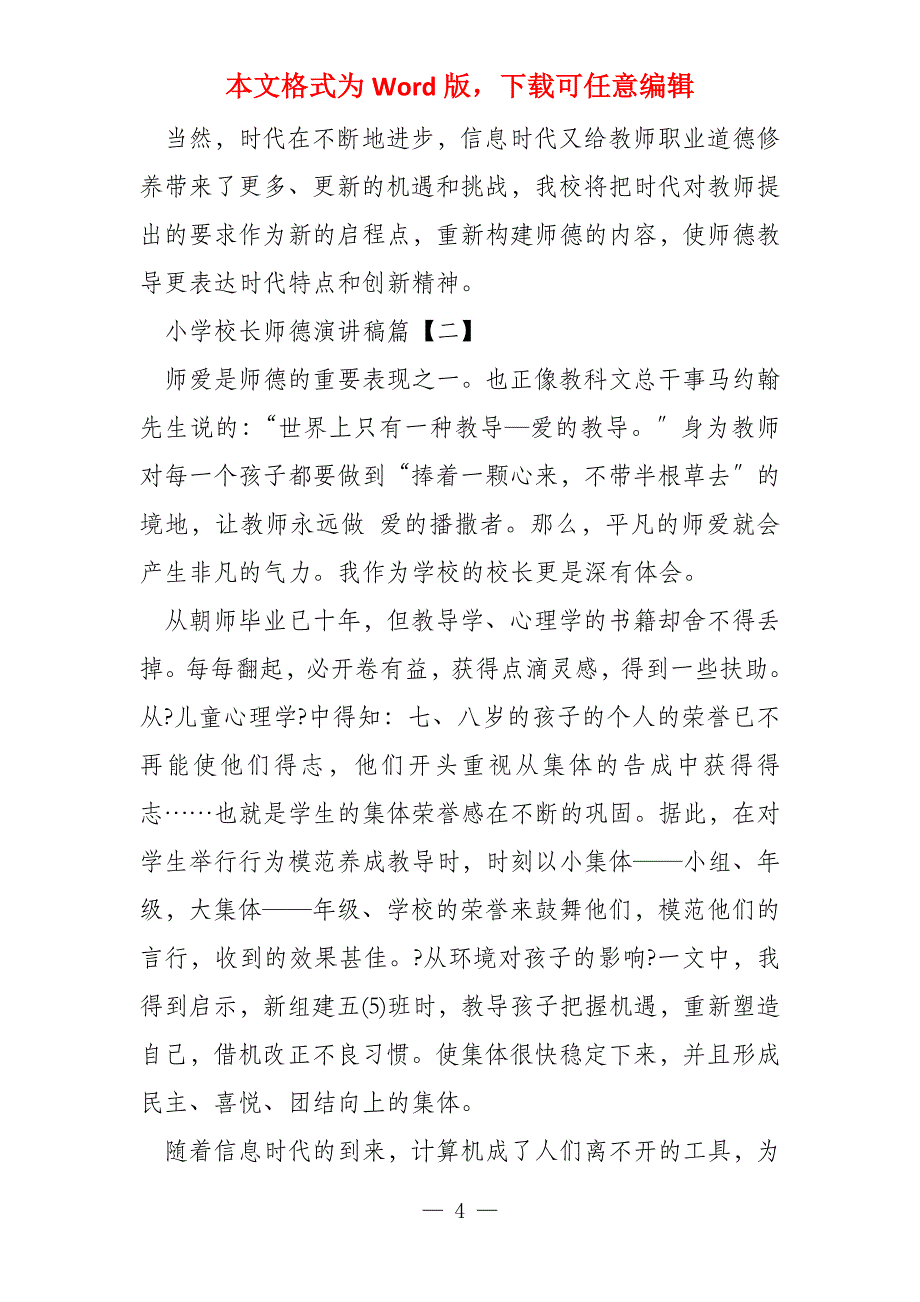 本文格式为 Word 版，下载可任意编辑
当然，时代在不断地进步，信息时代又给教师职业道德修
养带来了更多、更新的机遇和挑战，我校将把时代对教师提
出的要求作为新的启程点，重新构建师德的内容，使师德教
导更表达时代特点和创新精神。
小学校长师德演讲稿篇【二】
师爱是师德的重要表现之一。也正像教科文总干事马约翰
先生说的：“世界上只有一种教导—爱的教导。″身为教师
对每一个孩子都要做到“捧着一颗心来，不带半根草去″的
境地，让教师永远做 爱的播撒者。那么，平凡的师爱就会
产生非凡的气力。我作为学校的校长更是深有体会。
从朝师毕业已十年，但教导学、心理学的书籍却舍不得丢
掉。每每翻起，必开卷有益，获得点滴灵感，得到一些扶助。
从?儿童心理学?中得知：七、八岁的孩子的个人的荣誉已不
再能使他们得志，他们开头重视从集体的告成中获得得
志······也就是学生的集体荣誉感在不断的巩固。据此，在对
学生举行行为模范养成教导时，时刻以小集体——小组、年
级，大集体——年级、学校的荣誉来鼓舞他们，模范他们的
言行，收到的效果甚佳。?从环境对孩子的影响?一文中，我
得到启示，新组建五(5)班时，教导孩子把握机遇，重新塑造
自己，借机改正不良习惯。使集体很快稳定下来，并且形成
民主、喜悦、团结向上的集体。
随着信息时代的到来，计算机成了人们离不开的工具，为
— 4 —